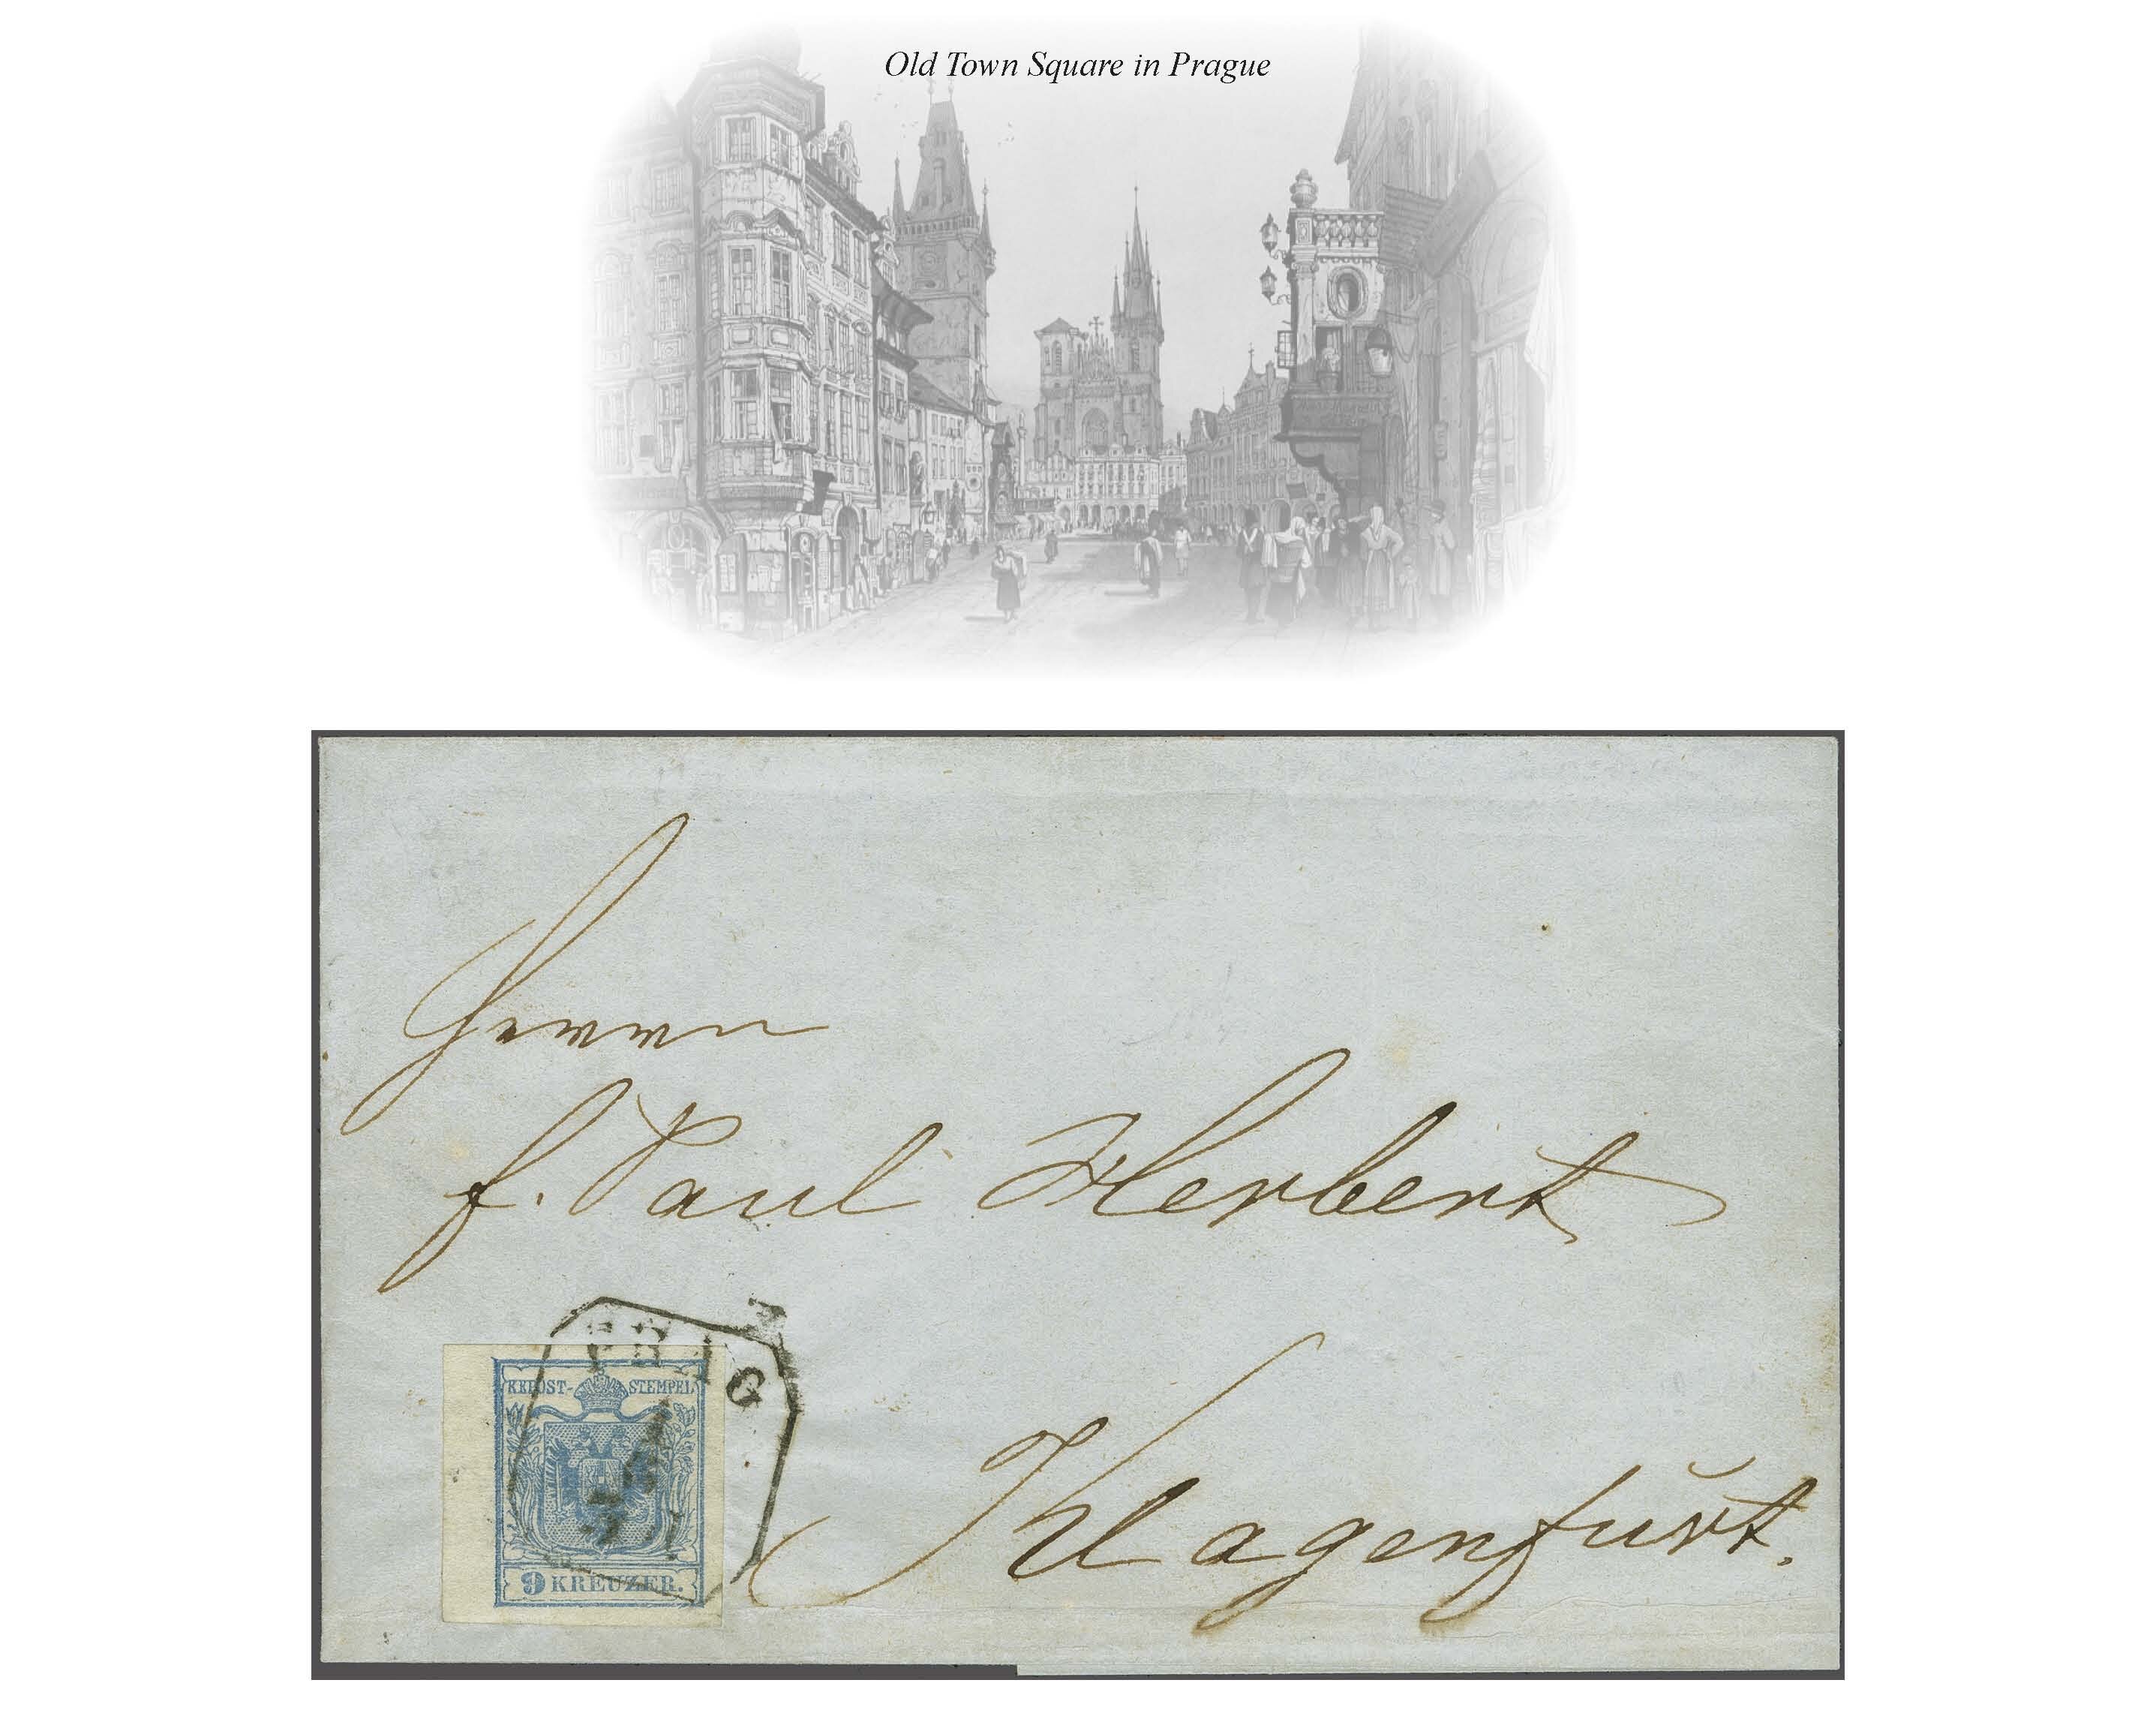 Old Town Square in Prague
Herrn
f. Paul Herbert
PRAG
KKPOST-STEMPEL
9 KREUZER.
Klagenfurt.